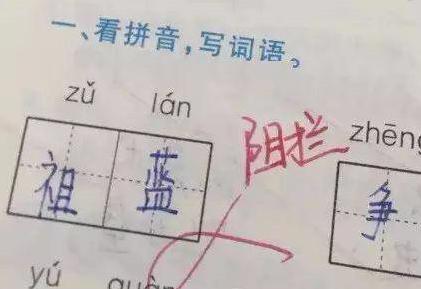 一、看拼音,写词语。
zǔ lán zhēng
祖蓝 阻拦 争
yú quàn